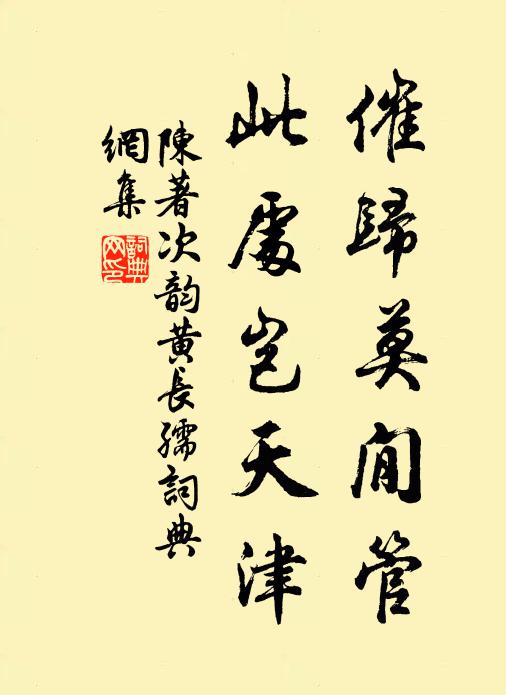 催歸莫閒管
此處豈天津
陳著次韵黄長孺詞典
網集
詞典網印